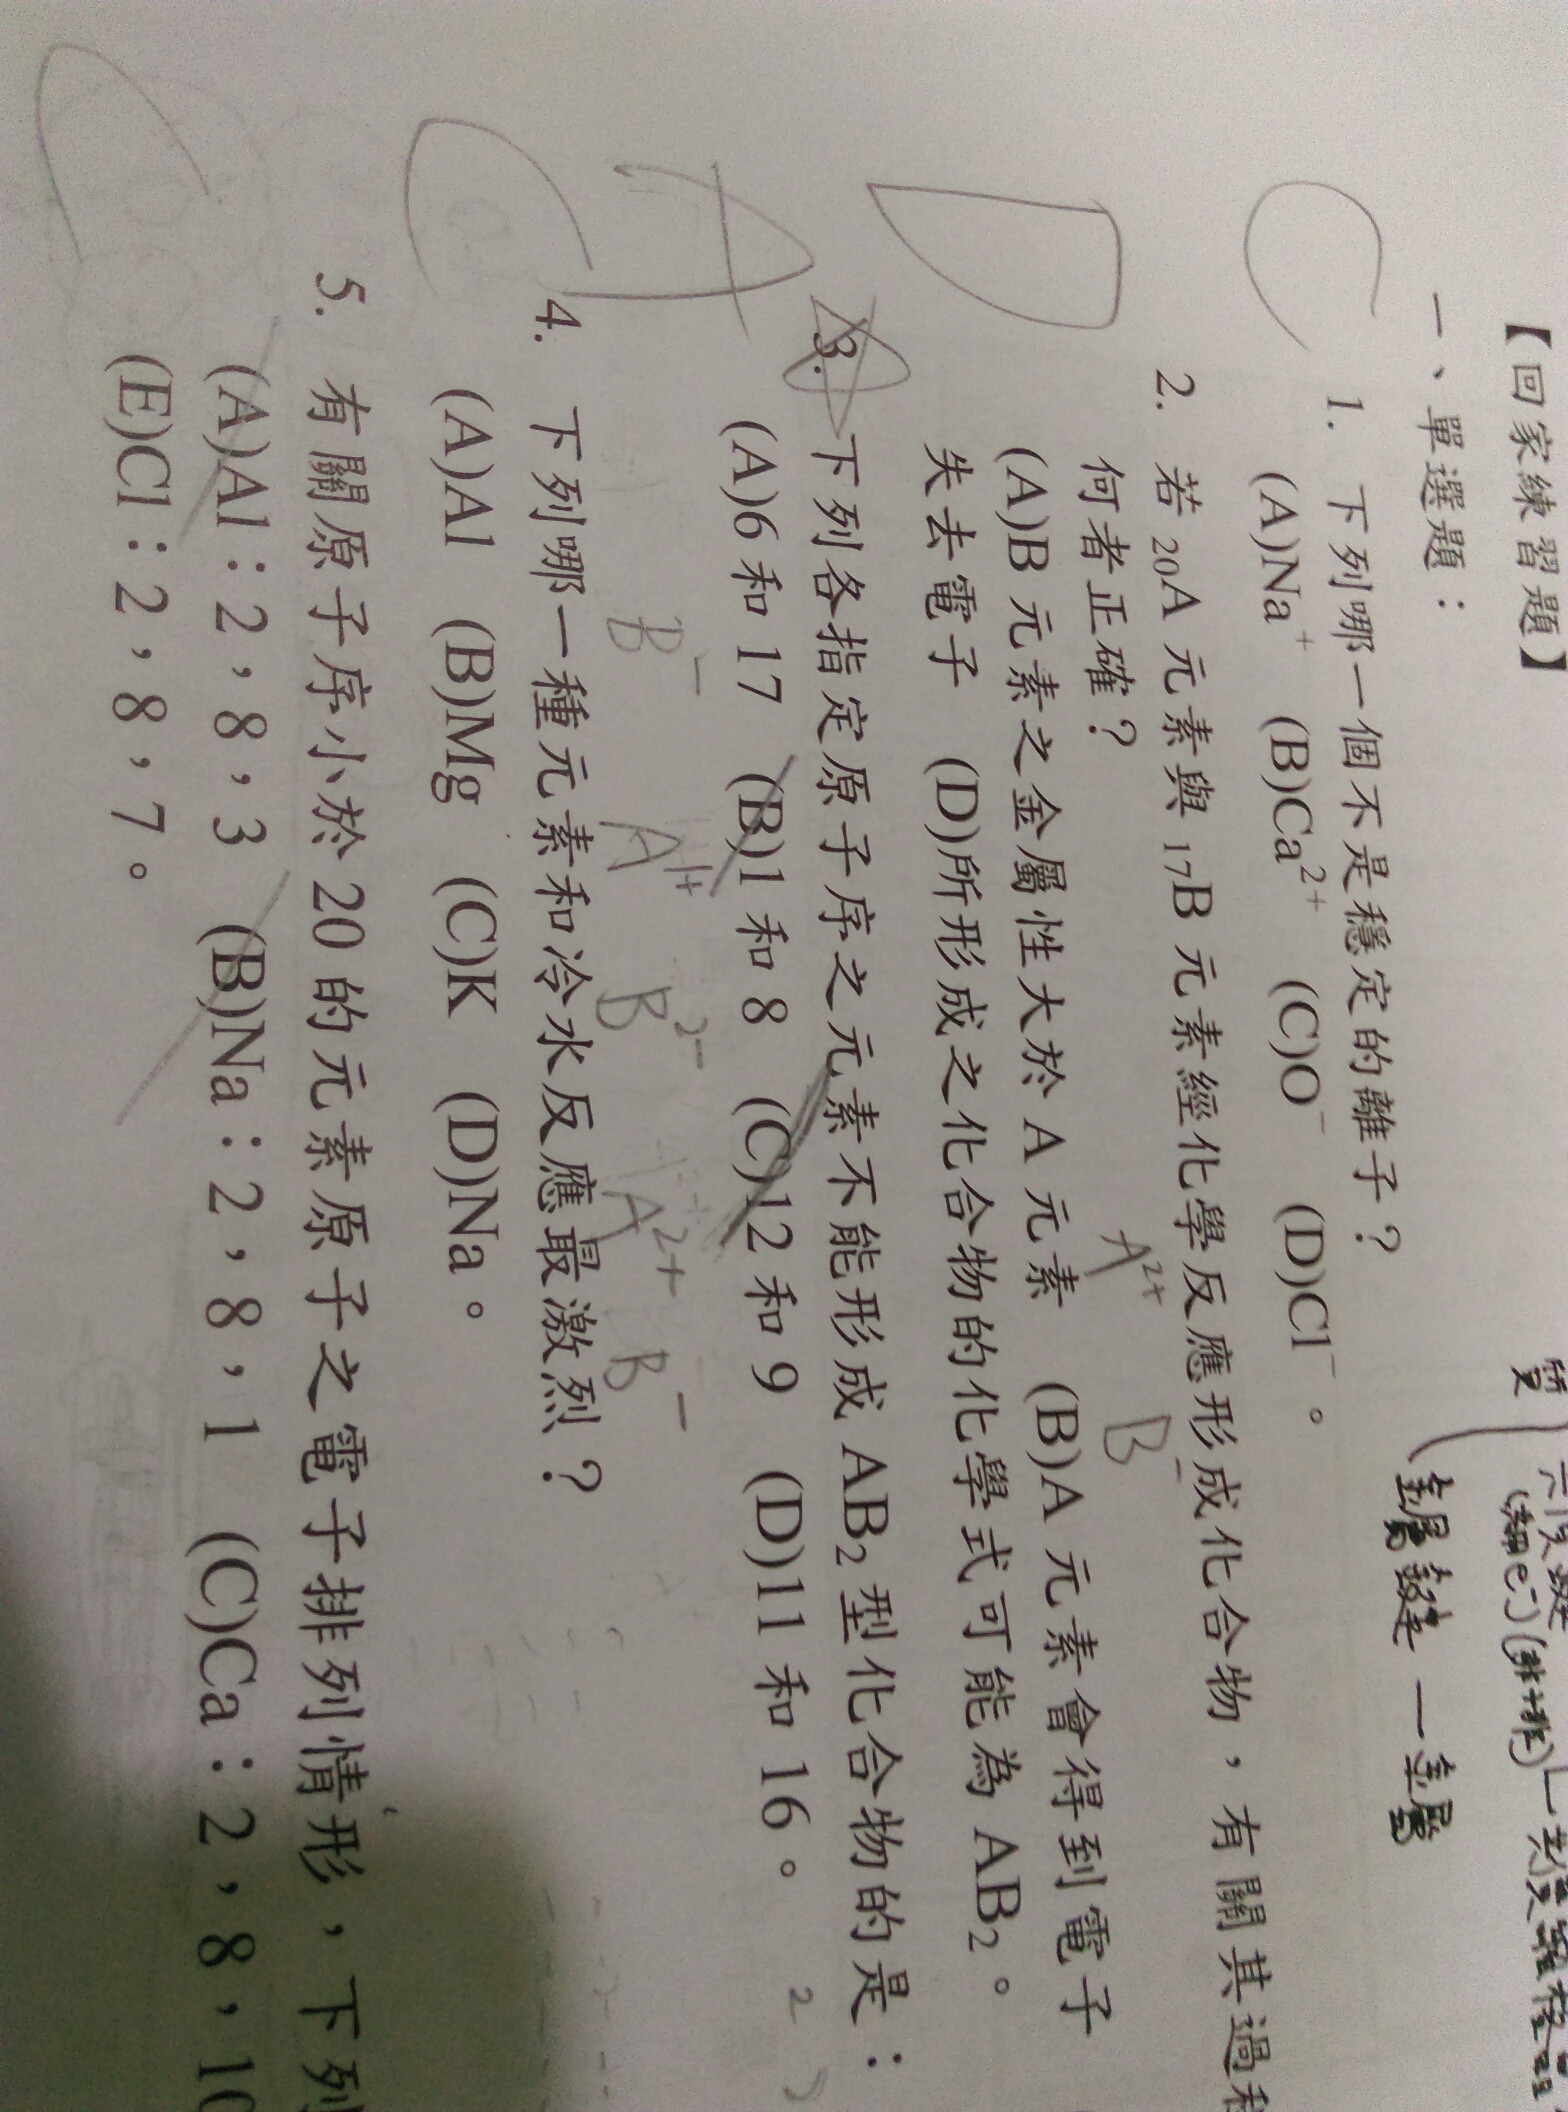 【回家練習題】
一、單選題：
C
1. 下列哪一個不是穩定的離子？
(A)Na⁺ (B)Ca²⁺ (C)O⁻ (D)Cl⁻。
質
金屬鍵 — 金屬
D
2. 若 ₂₀A 元素與 ₁₇B 元素經化學反應形成化合物，有關其過
何者正確？ A²⁺ B⁻
(A)B 元素之金屬性大於 A 元素 (B)A 元素會得到電子
失去電子 (D)所形成之化合物的化學式可能為 AB₂。
A
3. 下列各指定原子序之元素不能形成 AB₂ 型化合物的是：
(A)6 和 17 (B)1 和 8 (C)12 和 9 (D)11 和 16。
B⁻ A⁺ B²⁻ A²⁺ B⁻
C
4. 下列哪一種元素和冷水反應最激烈？
(A)Al (B)Mg (C)K (D)Na。
C
5. 有關原子序小於 20 的元素原子之電子排列情形，下列
(A)Al：2，8，3 (B)Na：2，8，1 (C)Ca：2，8，10
(E)Cl：2，8，7。